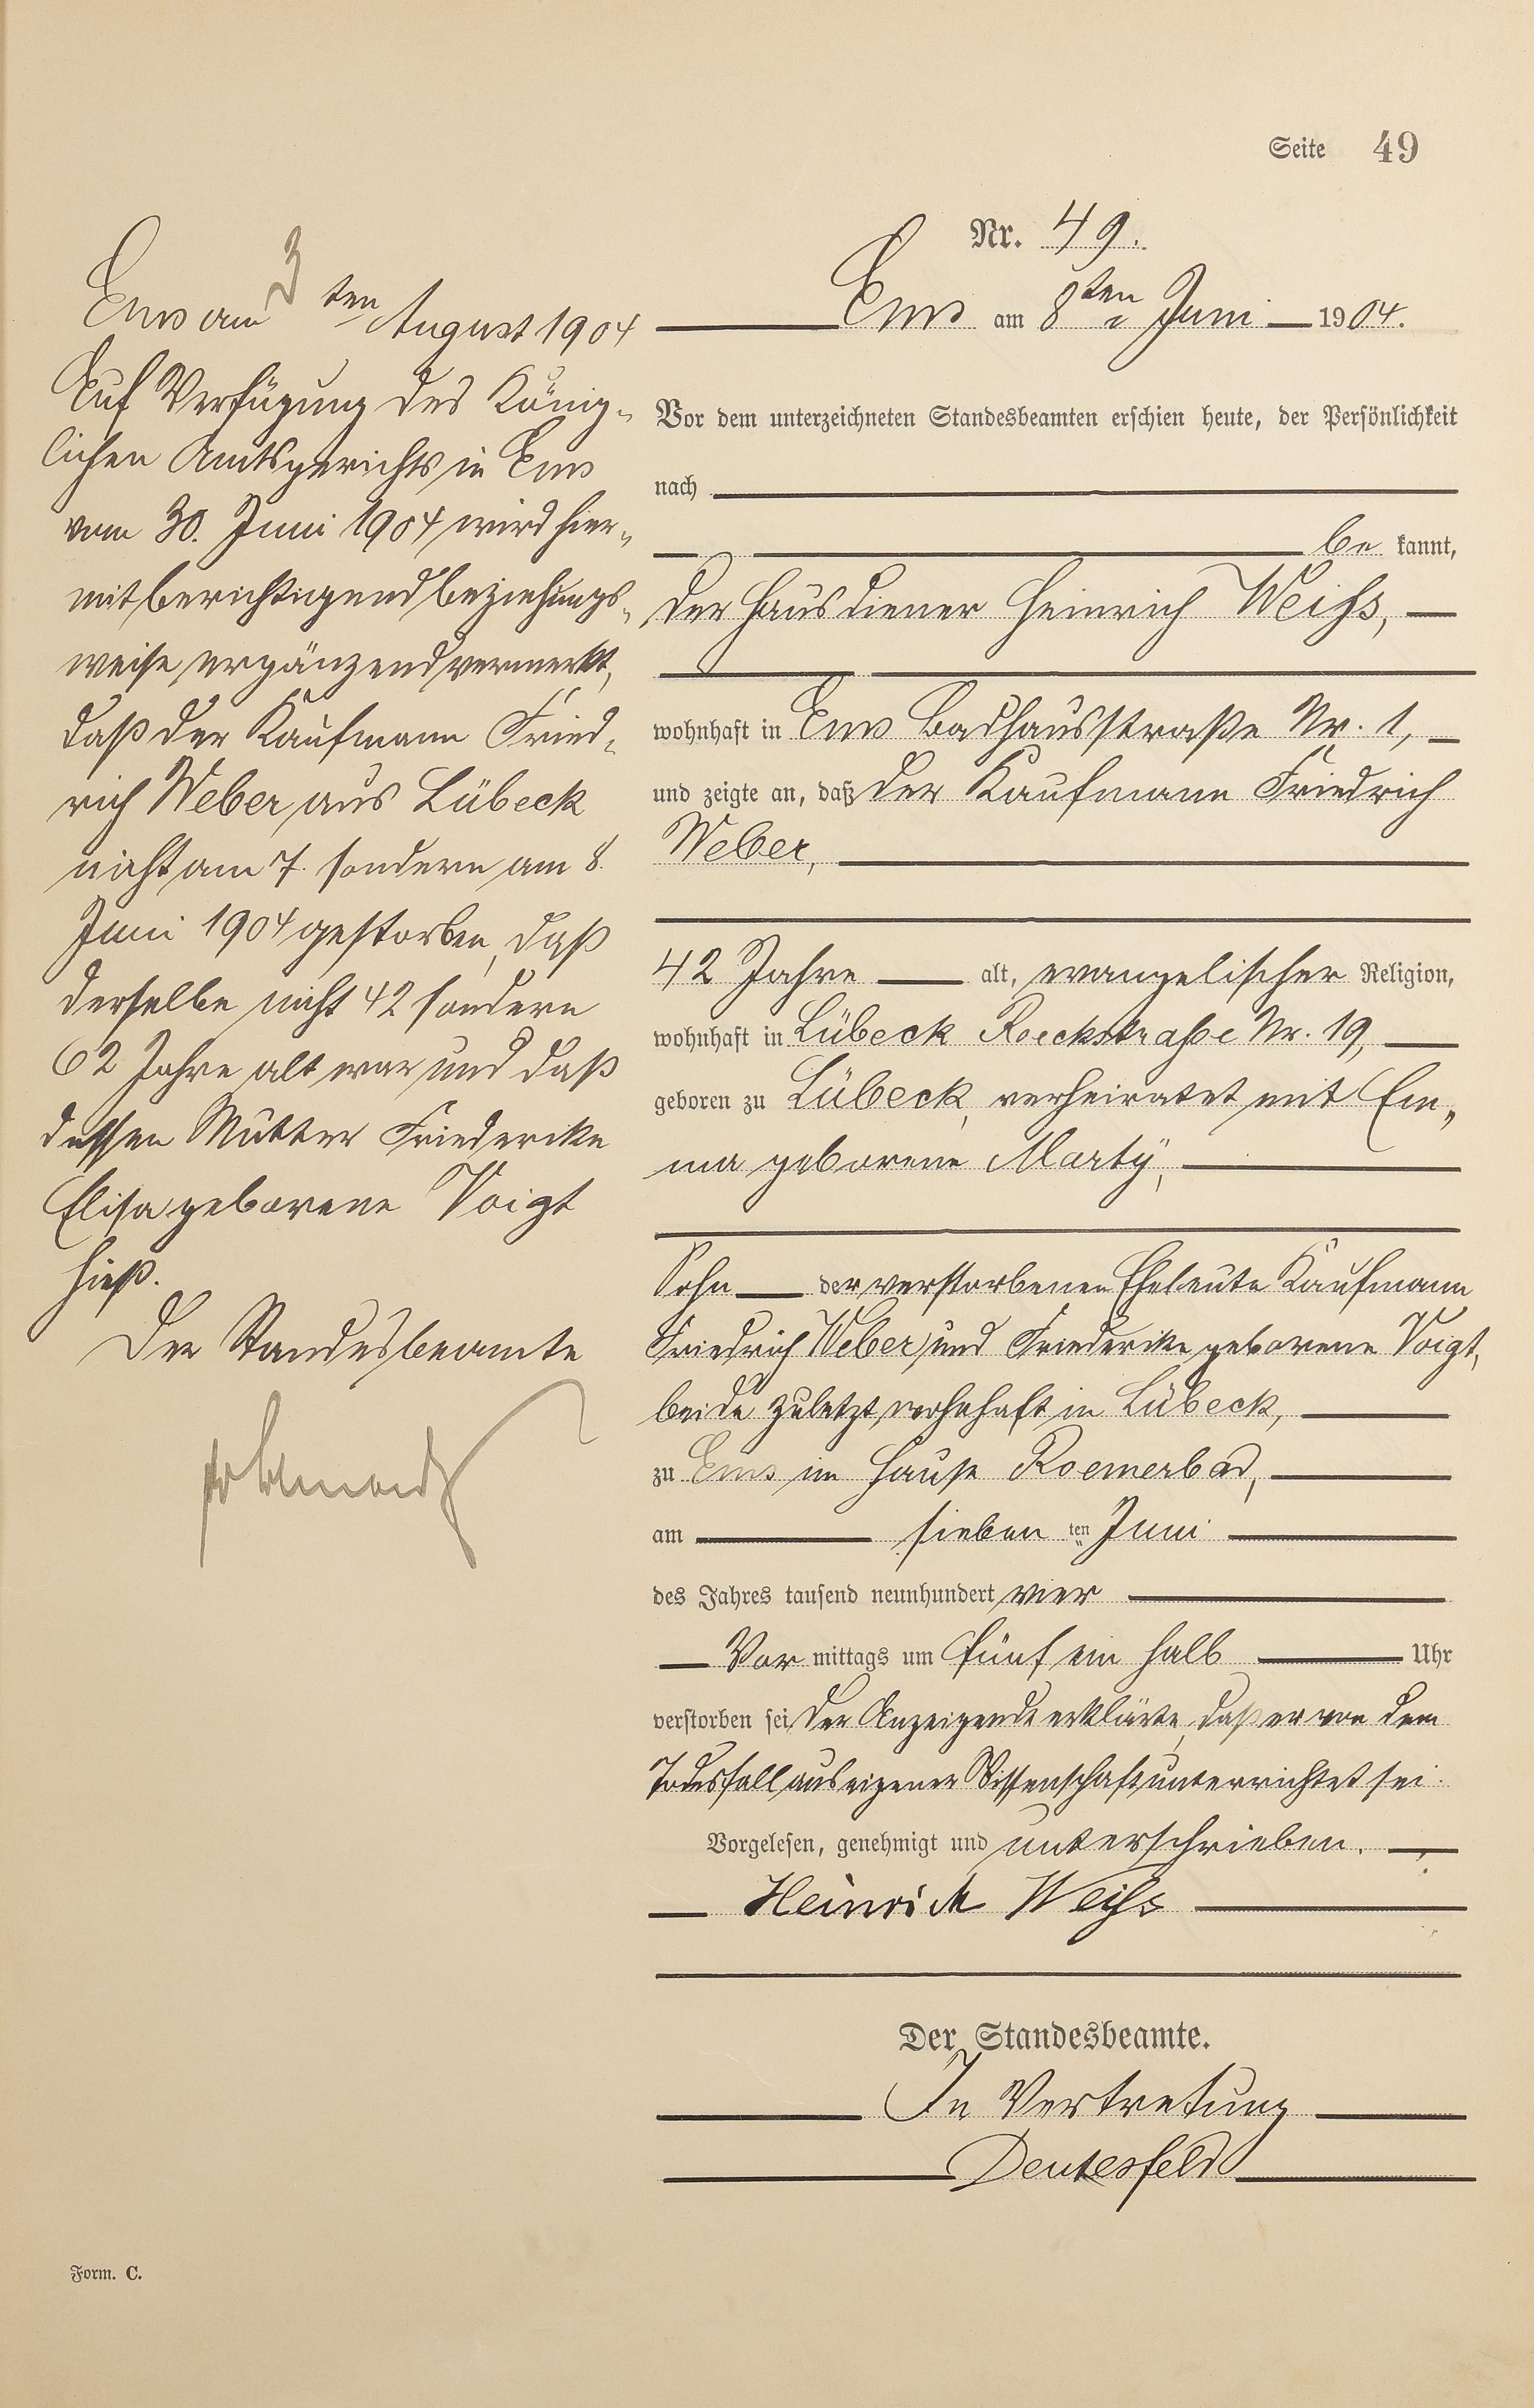 Seite 49
Nr. 49.
Ems am 8ten Juni 1904.
Vor dem unterzeichneten Standesbeamten erschien heute, der Persönlichkeit
nach
be kannt,
der Hausdiener Heinrich Weihs,
wohnhaft in Ems Badhausstraße Nr. 1,
und zeigte an, daß der Kaufmann Friedrich
Weber,
42 Jahre alt, evangelischer Religion,
wohnhaft in Lübeck Roeckstrahse Nr. 19,
geboren zu Lübeck, verheiratet mit Em„
ma geborene Marty,
Sohn der verstorbenen Eheleute Kaufmann
Friedrich Weber und Friederike geborene Voigt,
beide zuletzt wohnhaft in Lübeck,
zu Ems im Hause Roemerbad,
am sieben ten Juni
des Jahres tausend neunhundert vier
Vor mittags um fünf ein halb Uhr
verstorben sei. Der Anzeigende erklärte, daß er von dem
Todesfall aus eigener Wissenschaft unterrichtet sei.
Vorgelesen, genehmigt und unterschrieben.
Heinrich Weihs
Der Standesbeamte.
In Vertretung
Deutesfeld
Ems am 3ten August 1904
Auf Verfügung des König„
lichen Amtsgerichts in Ems
vom 30. Juni 1904 wird hier„
mit berichtigend beziehungs„
weise ergänzend vermerkt,
daß der Kaufmann Fried„
rich Weber aus Lübeck
nicht am 7. sondern am 8.
Juni 1904 gestorben, daß
derselbe nicht 42 sondern
62 Jahre alt war und daß
dessen Mutter Friederike
Elisa geborene Voigt
hieß.
Der Standesbeamte
Form. C.